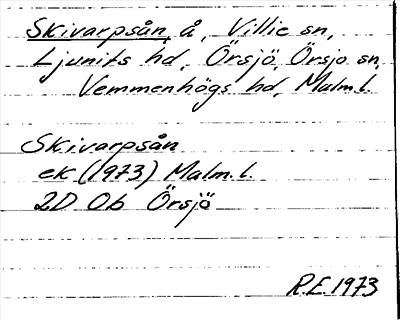 Skivarpsån, å, Villie sn,
Ljunits hd, Örsjö, Örsjö sn,
Vemmenhögs hd, Malm.l.
Skivarpsån
ek (1973) Malm.l.
2D 0b Örsjö
R.E. 1973